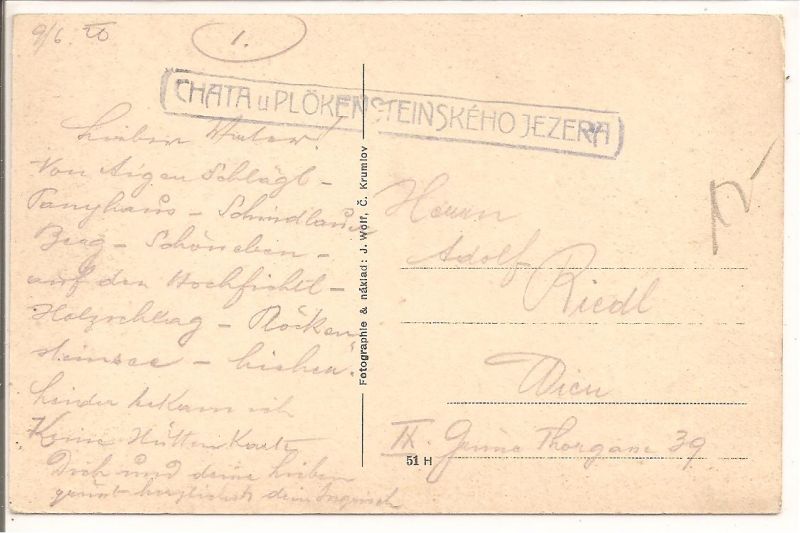 9/6 20
1.
CHATA u PLÖKENSTEINSKÉHO JEZERA
Lieber Vater!
Von Aigen Schlägl -
Panyhaus - Schindlauer
Berg - Schöneben -
auf den Hochfichtl -
Holzschlag - Plöcken
steinsee - hieher.
Leider bekam ich
Keine Hüttenkarte
Dich und deine Lieben
grüsst herzlichst dein
Fotografie & náklad: J. Wolf, Č. Krumlov
51 H
Herrn
Adolf
Riedl
Wien
IX. Grüne Thorgasse 39